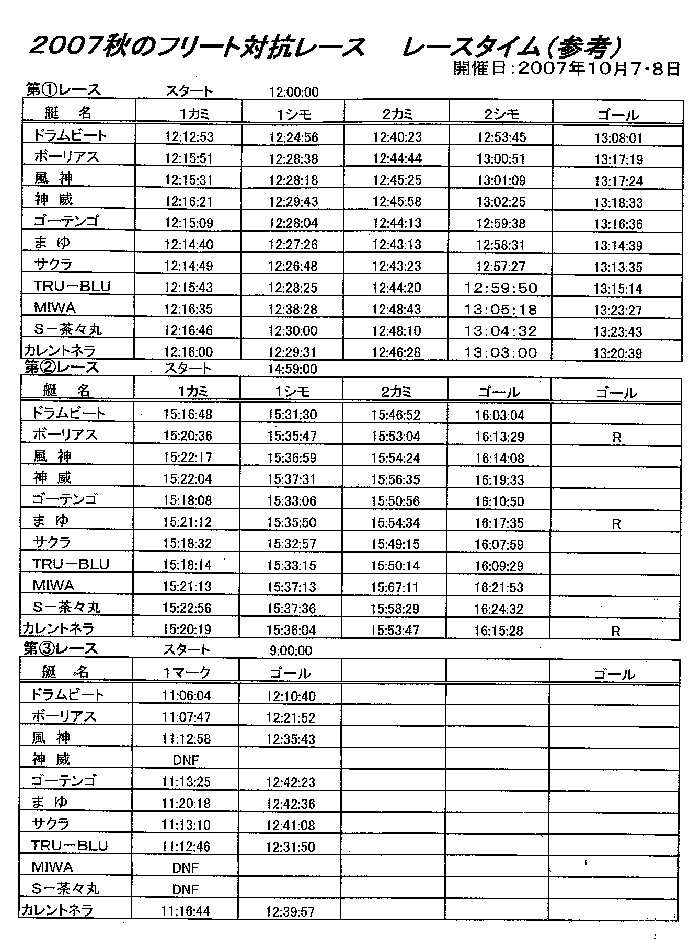 2007秋のフリート対抗レース レースタイム(参考)
開催日:2007年10月7・8日
第①レース スタート 12:00:00
艇 名 1カミ 1シモ 2カミ 2シモ ゴール
ドラムビート 12:12:53 12:24:56 12:40:23 12:53:45 13:08:01
ボーリアス 12:15:51 12:28:38 12:44:44 13:00:51 13:17:19
風 神 12:15:31 12:28:18 12:45:25 13:01:09 13:17:24
神 威 12:16:21 12:29:43 12:45:58 13:02:25 13:18:33
ゴーテンゴ 12:15:09 12:28:04 12:44:13 12:59:38 13:16:36
ま ゆ 12:14:40 12:27:26 12:43:13 12:58:31 13:14:39
サクラ 12:14:49 12:26:48 12:43:23 12:57:27 13:13:35
TRU-BLU 12:15:43 12:28:25 12:44:20 12:59:50 13:15:14
MIWA 12:16:35 12:38:28 12:48:43 13:05:18 13:23:27
S-茶々丸 12:16:46 12:30:00 12:48:10 13:04:32 13:23:43
カレントネラ 12:16:00 12:29:31 12:46:28 13:03:00 13:20:39
第②レース スタート 14:59:00
艇 名 1カミ 1シモ 2カミ ゴール ゴール
ドラムビート 15:16:48 15:31:30 15:46:52 16:03:04
ボーリアス 15:20:36 15:35:47 15:53:04 16:13:29 R
風 神 15:22:17 15:36:59 15:54:24 16:14:08
神 威 15:22:04 15:37:31 15:56:35 16:19:33
ゴーテンゴ 15:18:08 15:33:06 15:50:56 16:10:50
ま ゆ 15:21:12 15:35:50 15:54:34 16:17:35 R
サクラ 15:18:32 15:32:57 15:49:15 16:07:59
TRU-BLU 15:18:14 15:33:15 15:50:14 16:09:29
MIWA 15:21:13 15:37:13 15:67:11 16:21:53
S-茶々丸 15:22:56 15:37:36 15:58:29 16:24:32
カレントネラ 15:20:19 15:36:04 15:53:47 16:15:28 R
第③レース スタート 9:00:00
艇 名 1マーク ゴール ゴール
ドラムビート 11:06:04 12:10:40
ボーリアス 11:07:47 12:21:52
風 神 11:12:58 12:35:43
神 威 DNF
ゴーテンゴ 11:13:25 12:42:23
ま ゆ 11:20:18 12:42:36
サクラ 11:13:10 12:41:08
TRU-BLU 11:12:46 12:31:50
MIWA DNF
S-茶々丸 DNF
カレントネラ 11:16:44 12:39:57